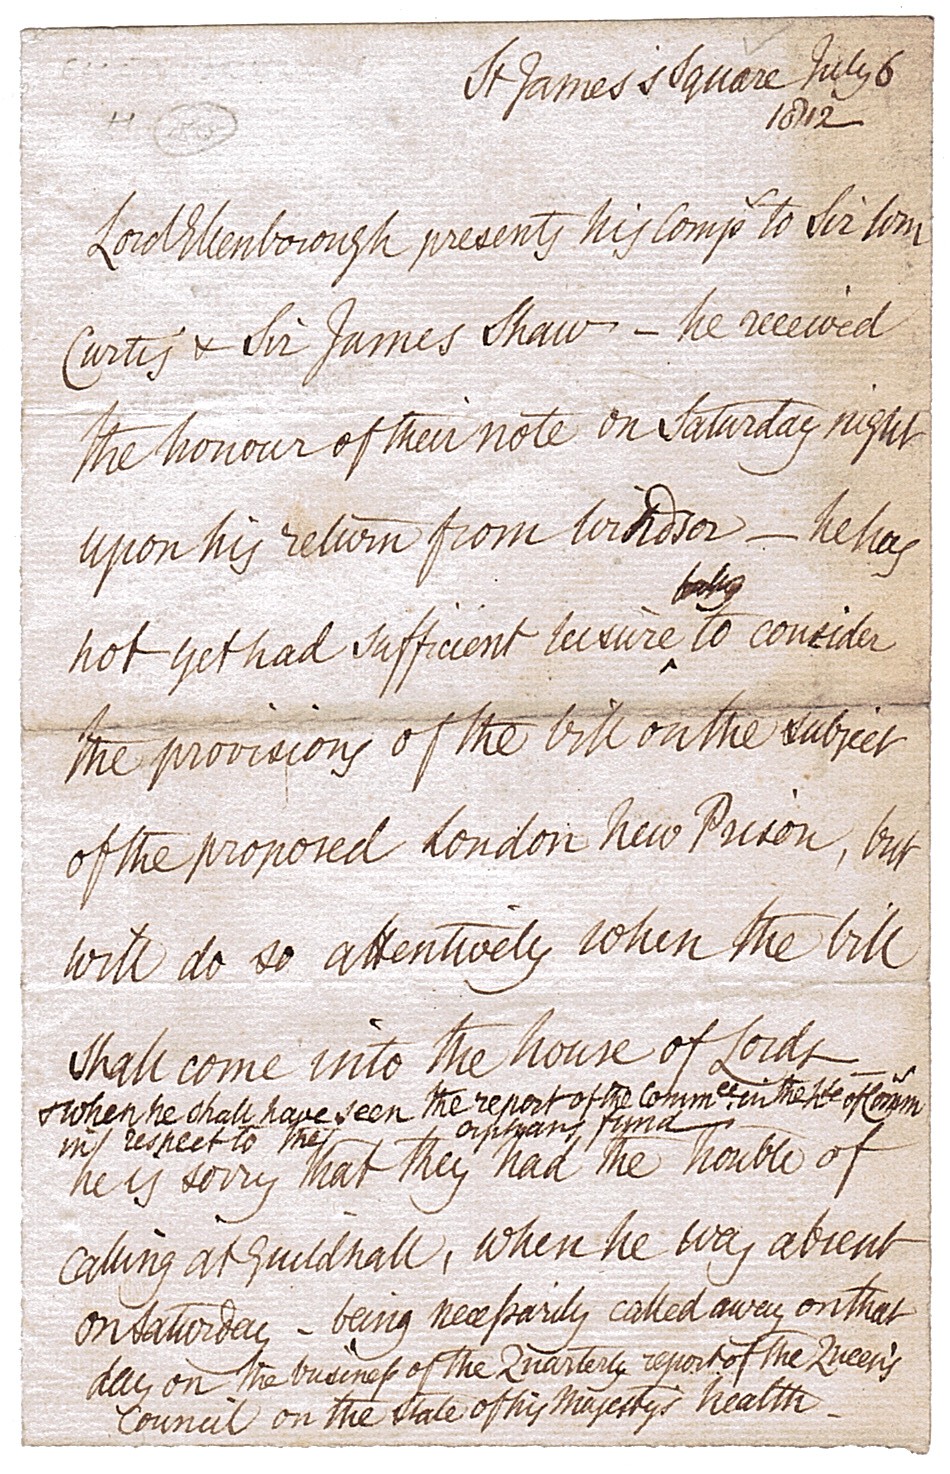 St James's Square July 6
1812
Lord Ellenborough presents his Comps to Sir Wm
Curtis & Sir James Shaw – he received
the honour of their note on Saturday night
upon his return from Windsor – he has
not yet had sufficient leisure to consider
the provisions of the bill on the subject
of the proposed London New Prison, but
will do so attentively when the bill
shall come into the house of Lords –
& when he shall have seen the report of the Commee in the He of Comms
in respect to the orphans fund
he is sorry that they had the trouble of
calling at Guildhall, when he was absent
on Saturday – being necessarily called away on that
day on the business of the Quarterly report of the Queen's
Council on the state of his Majesty's health –